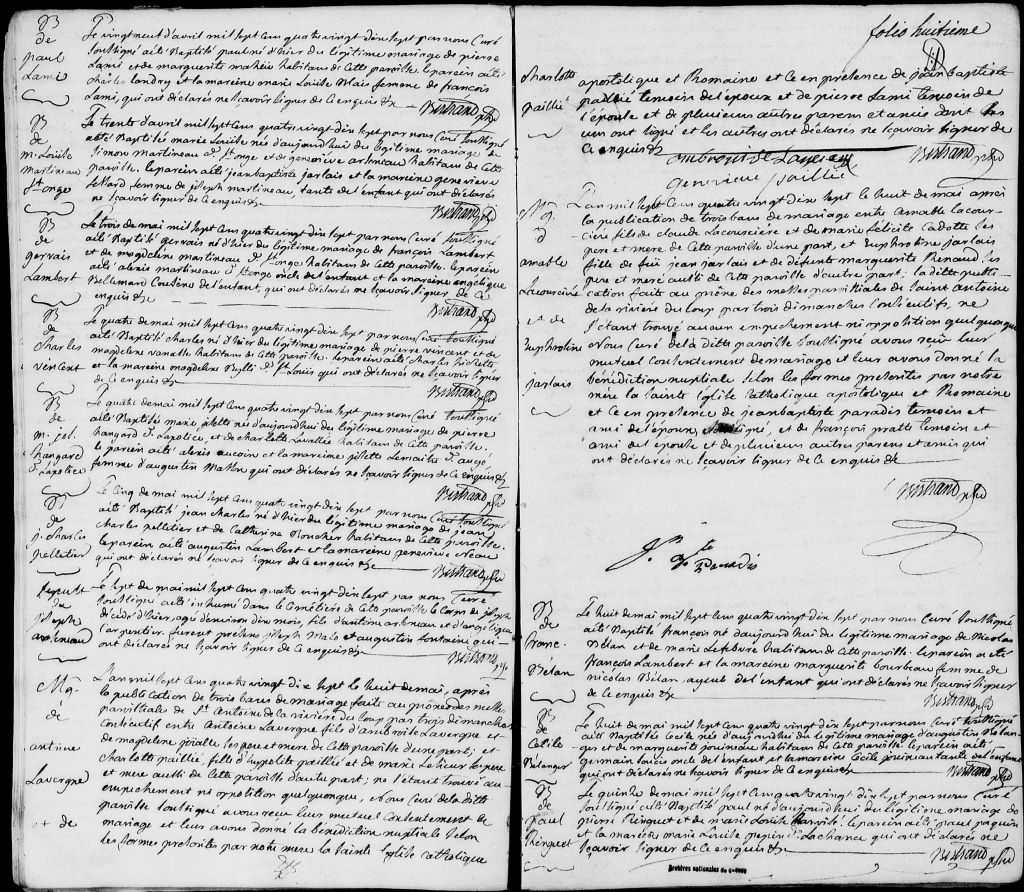 B
de
paul
Lami
Le vingtneuf d'avril mil sept Cens quatre vingt dix sept par nous Curé
soussigné a été Baptisé paul né d'hier du légitime mariage de pierre
Lami et de marguerite habitans de Cette paroisse. le parein a été
charles landry et la mareine marie Louise Blais femme de françois
Lami, qui ont déclarés ne sçavoir signer de Ce enquis &
Bertrand ptre
B
de
m. Louise
martineau
St onge
Le trente d'avril mil sept Cens quatre vingt dix sept par nous Curé soussigné
a été Baptisée marie Louise née d'aujourd'hui du légitime mariage de
simon martineau dt St onge et de geneviève arseneau habitans de Cette
paroisse. le parein a été jean baptiste jarlais et la mareine geneviève
femme de joseph martineau, tante de l'enfant qui ont déclarés
ne sçavoir signer de Ce enquis &
Bertrand ptre
B
de
gervais
Lambert
Le trois de mai mil sept Cens quatre vingt dix sept par nous Curé soussigné
a été Baptisé gervais né d'hier du légitime mariage de françois Lambert
et de magdeleine martineau dt St onge habitans de Cette paroisse. le parein
a été alexis martineau dt St onge oncle de l'enfant et la mareine angelique
Bellemard Cousine de l'enfant, qui ont déclarés ne sçavoir signer de Ce
enquis &
Bertrand ptre
B
de
Charles
vencent
Le quatre de mai mil sept Cens quatre vingt dix sept par nous Curé soussigné
a été Baptisé charles né d'hier du légitime mariage de pierre vincent et de
magdeleine vanasse habitans de Cette paroisse. le parein a été charles
et la mareine magdeleine dt St Louis qui ont déclarés ne sçavoir signer
de Ce enquis &
Bertrand ptre
B
de
m. jos.
hangard
dt Lapotice
Le quatre de mai mil sept Cens quatre vingt dix sept par nous Curé soussigné
a été Baptisée marie josette née d'aujourd'hui du légitime mariage de pierre
hangard dt Lapotice, et de charlotte Lavallée habitans de Cette paroisse.
le parein a été alexis aucoin et la mareine josette Lemaitre dt augé
femme d'augustin qui ont déclarés ne sçavoir signer de Ce enquis &
Bertrand ptre
B
de
j. Charles
pelletier
Le Cinq de mai mil sept Cens quatre vingt dix sept par nous Curé soussigné
a été Baptisé jean charles né d'hier du légitime mariage de jean
charles pelletier et de Catherine Boucher habitans de Cette paroisse.
le parein a été augustin Lambert et la mareine geneviève
qui ont déclarés ne sçavoir signer de Ce enquis &
Bertrand ptre
sepulte
de
joseph
arseneau
Le sept de mai mil sept Cens quatre vingt dix sept par nous Curé
soussigné a été inhumé dans le Cimetière de Cette paroisse le Corps de joseph
décédé d'hier, agé d'environ dix mois, fils d'antoine arseneau et d'angelique
Carpentier. furent présens joseph et augustin fontaine qui
ont déclarés ne sçavoir signer de Ce enquis &
Bertrand ptre
Mg.
de
antoine
Lavergne
et de
L'an mil sept Cens quatre vingt dix sept le huit de mai, après
la publication de trois bans de mariage faite au prône des messes
paroissiales de St Antoine de la rivière du loup par trois dimanches
Consécutif entre Antoine Lavergne fils d'ambroise Lavergne et
de magdeleine les pere et mere de Cette paroisse d'une part; et
Charlotte paillé, fille d'hypolite paillé et de marie les pere
et mere aussi de Cette paroisse d'autre part; ne s'étant trouvé aucun
empechement ni opposition quelquonque, Nous Curé de la ditte
paroisse soussigné avons reçu leur mutuel Contentement de
mariage et leur avons donné la bénédiction nuptiale selon
les formes prescrites par notre mere la sainte Eglise Catholique
folio huitième
Charlotte
paillé
apostolique et Romaine et Ce en présence de jean baptiste
paillé temoin de l'époux et de pierre Lami temoin de
l'épouse et de plusieurs autres parens et amis dont les
uns ont signé et les autres ont déclarés ne sçavoir signer de
Ce enquis &
Bertrand ptre
genevieve paillé
Mg.
d
amable
Lacourcière
et de
Euphrosine
jarlais
L'an mil sept Cens quatre vingt dix sept le huit de mai après
la publication de trois bans de mariage entre amable Lacour-
cière fils de claude Lacourcière et de marie felicité Cadotte les
pere et mere de Cette paroisse d'une part, et Euphrosine jarlais
fille de feu jean jarlais et de défunte marguerite Renaud les
pere et mere aussi de Cette paroisse d'autre part; la ditte publi-
cation faite au prône des messes paroissiales de saint antoine
de la rivière du loup par trois dimanches Consécutifs, ne
s'étant trouvé aucun empechement ni opposition quelquonque
Nous Curé de la ditte paroisse soussigné avons reçu leur
mutuel Contentement de mariage et leur avons donné la
bénédiction nuptiale selon les formes prescrites par notre
mere la sainte Eglise Catholique apostolique et Romaine
et Ce en présence de jean baptiste paradis temoin et
ami de l'époux, soussigné, et de françois pratte temoin et
ami de l'épouse et de plusieurs autres parens et amis qui
ont déclarés ne sçavoir signer de Ce enquis &
Bertrand ptre
Paradis
B
de
Franc.
Bélan
Le huit de mai mil sept Cens quatre vingt dix sept par nous Curé soussigné
a été Baptisé françois né d'aujourd'hui du légitime mariage de Nicolas
Bélan et de marie Lefebvre habitans de Cette paroisse. le parein a été
françois Lambert et la mareine marguerite bourbeau femme de
nicolas Bélan, ayeule de l'enfant qui ont déclarés ne sçavoir signer
de Ce enquis &
Bertrand ptre
B
de
Cecile
Belanger
Le huit de mai mil sept Cens quatre vingt dix sept par nous Curé soussigné
a été Baptisée Cecile née d'aujourd'hui du légitime mariage d'augustin Belan-
ger et de marguerite habitans de Cette paroisse le parein a été
germain oncle de l'enfant et la mareine Cecile tante de l'enfant
qui ont déclarés ne sçavoir signer de Ce enquis &
Bertrand ptre
B
de
Paul
Renguet
Le quinze de mai mil sept Cens quatre vingt dix sept par nous Curé
soussigné a été Baptisé paul né d'aujourd'hui du légitime mariage de
pierre Renguet et de marie Louise paroisse. le parein a été paul paquin
et la mareine marie Louise pepin dt Lachance qui ont déclarés ne
sçavoir signer de Ce enquis &
Bertrand ptre
Archives nationales du